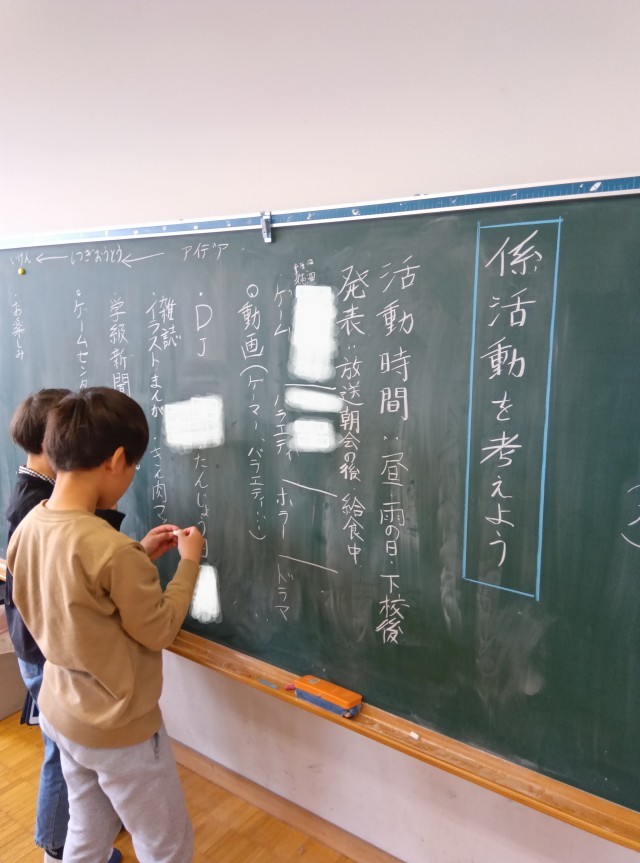 係活動を考えよう
活動時間：昼・雨の日・下校後
発表：放送朝会の後 給食中
ゲーム ラエティ ホラー ドラマ
◎動画（ゲーマー、バラエティ…）
アイデア
・DJ たんじょう
・雑誌
・イラストまんが
・学級新聞
←しつぎおうとう←
・ゲームセンタ
・お楽しみ